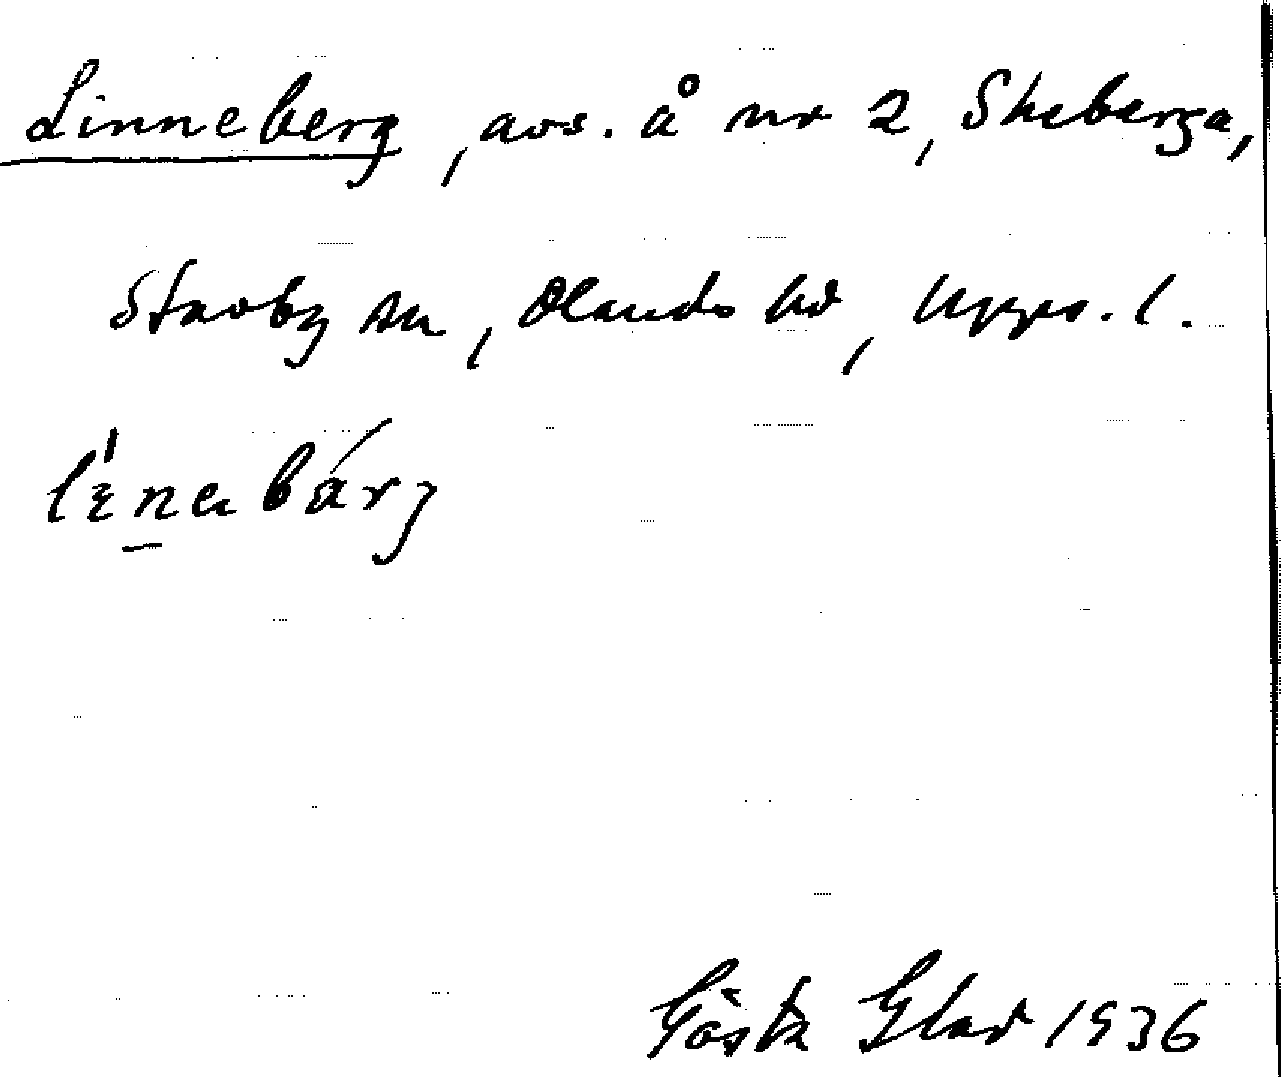 Linneberg, avs. å nr 2, Skeberga,
Stavby sn, Olands hd, Upps. l.
Gösta Elav 1936